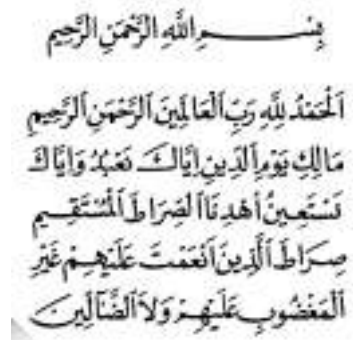 بِسْمِ اللَّهِ الرَّحْمَنِ الرَّحِيمِ
اَلْحَمْدُ لِلَّهِ رَبِّ الْعَالَمِينَ اَلرَّحْمَنِ اَلرَّحِيمِ
مَالِكِ يَوْمِ الدِّينِ إِيَّاكَ نَعْبُدُ وَإِيَّاكَ
نَسْتَعِينُ اَهْدِنَا الصِّرَاطَ الْمُسْتَقِيمَ
صِرَاطَ الَّذِينَ اَنْعَمْتَ عَلَيْهِمْ غَيْرِ
الْمَغْضُوبِ عَلَيْهِمْ وَلاَ الضَّآلِّينَ